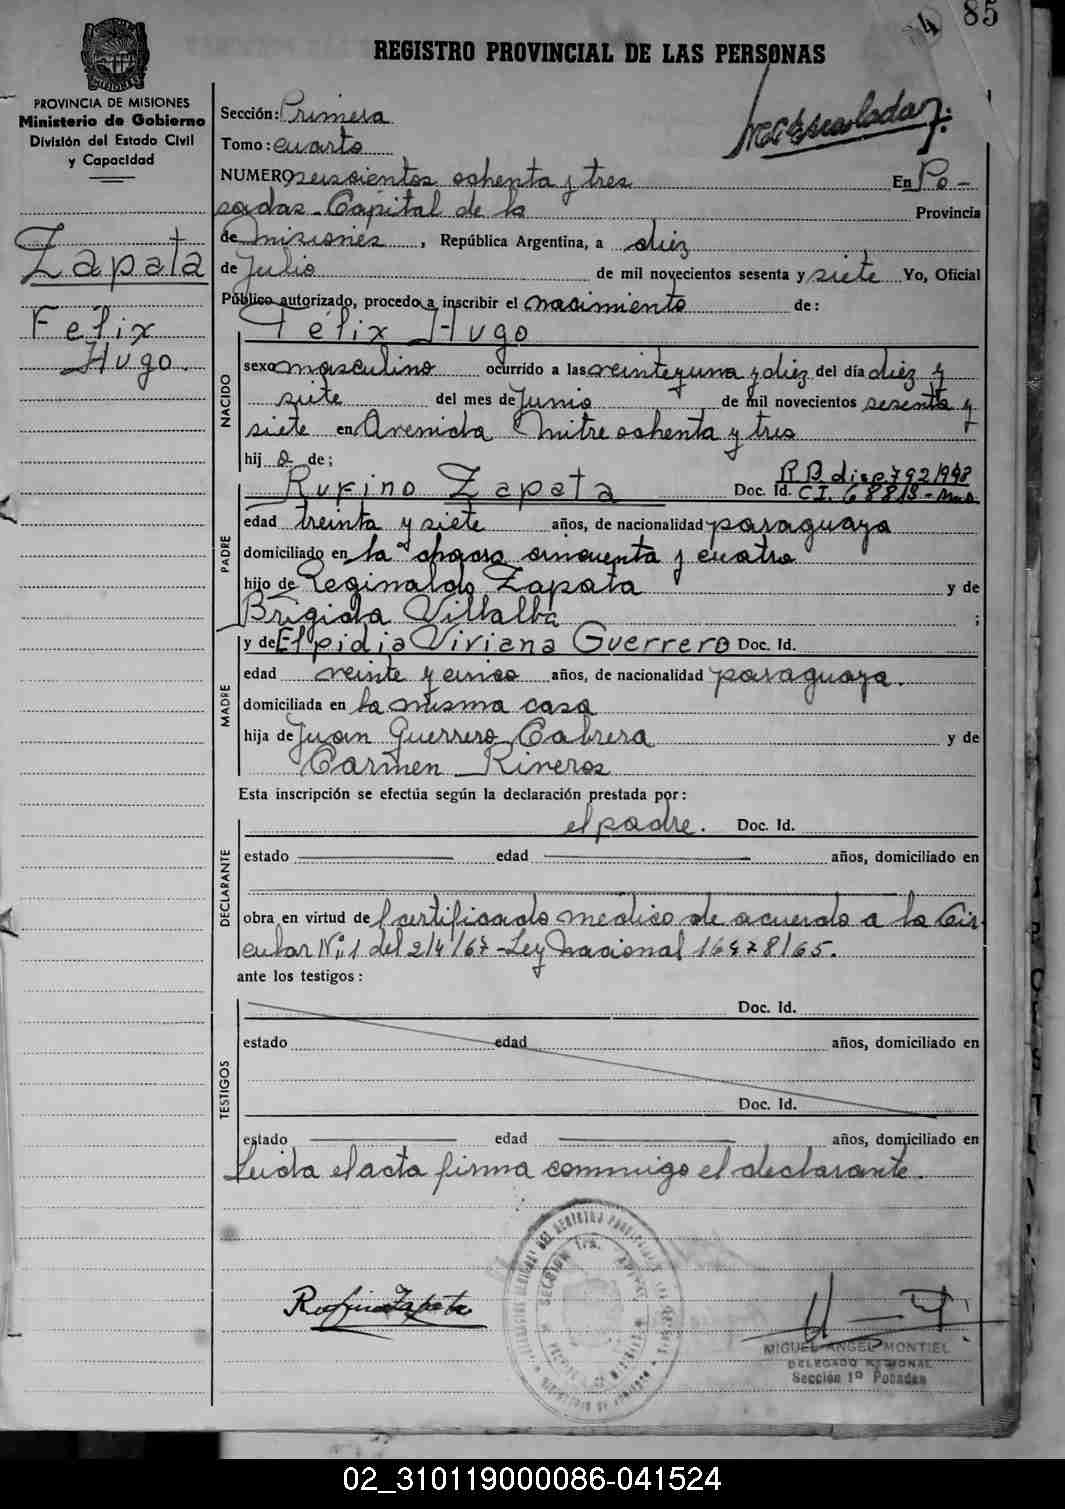 85
4
REGISTRO PROVINCIAL DE LAS PERSONAS
PROVINCIA DE MISIONES
Ministerio de Gobierno
División del Estado Civil
y Capacidad
Zapata
Félix
Hugo.
Sección: Primera
Tomo: cuarto
NUMERO seiscientos ochenta y tres En Po-
sadas - Capital de la Provincia
de Misiones, República Argentina, a diez
de Julio de mil novecientos sesenta y siete Yo, Oficial
Público autorizado, procedo a inscribir el nacimiento de:
Félix Hugo
NACIDO
sexo masculino ocurrido a las veinte y una y diez del día diez y
siete del mes de Junio de mil novecientos sesenta y
siete en Avenida Mitre ochenta y tres
hij o de;
PADRE
Rufino Zapata Doc. Id. C.I. 68815-Mnes
edad treinta y siete años, de nacionalidad paraguaya
domiciliado en la chacra cincuenta y cuatro
hijo de Reginaldo Zapata y de
Brígida Villalba ;
MADRE
y de Elpidia Viviana Guerrero Doc. Id.
edad veinte y cinco años, de nacionalidad paraguaya.
domiciliada en la misma casa
hija de Juan Guerrero Cabrera y de
Carmen Riveros
Esta inscripción se efectúa según la declaración prestada por:
DECLARANTE
el padre. Doc. Id.
estado edad años, domiciliado en
obra en virtud de certificado médico de acuerdo a la Cir-
cular Nº:1 del 2/4/67 - Ley Nacional 16478/65.
ante los testigos:
TESTIGOS
Doc. Id.
estado edad años, domiciliado en
Doc. Id.
estado edad años, domiciliado en
Leida el acta firma conmigo el declarante.
Rufino Zapata
MIGUEL ANGEL MONTIEL
DELEGADO REGIONAL
Sección 1º Posadas
02_310119000086-041524